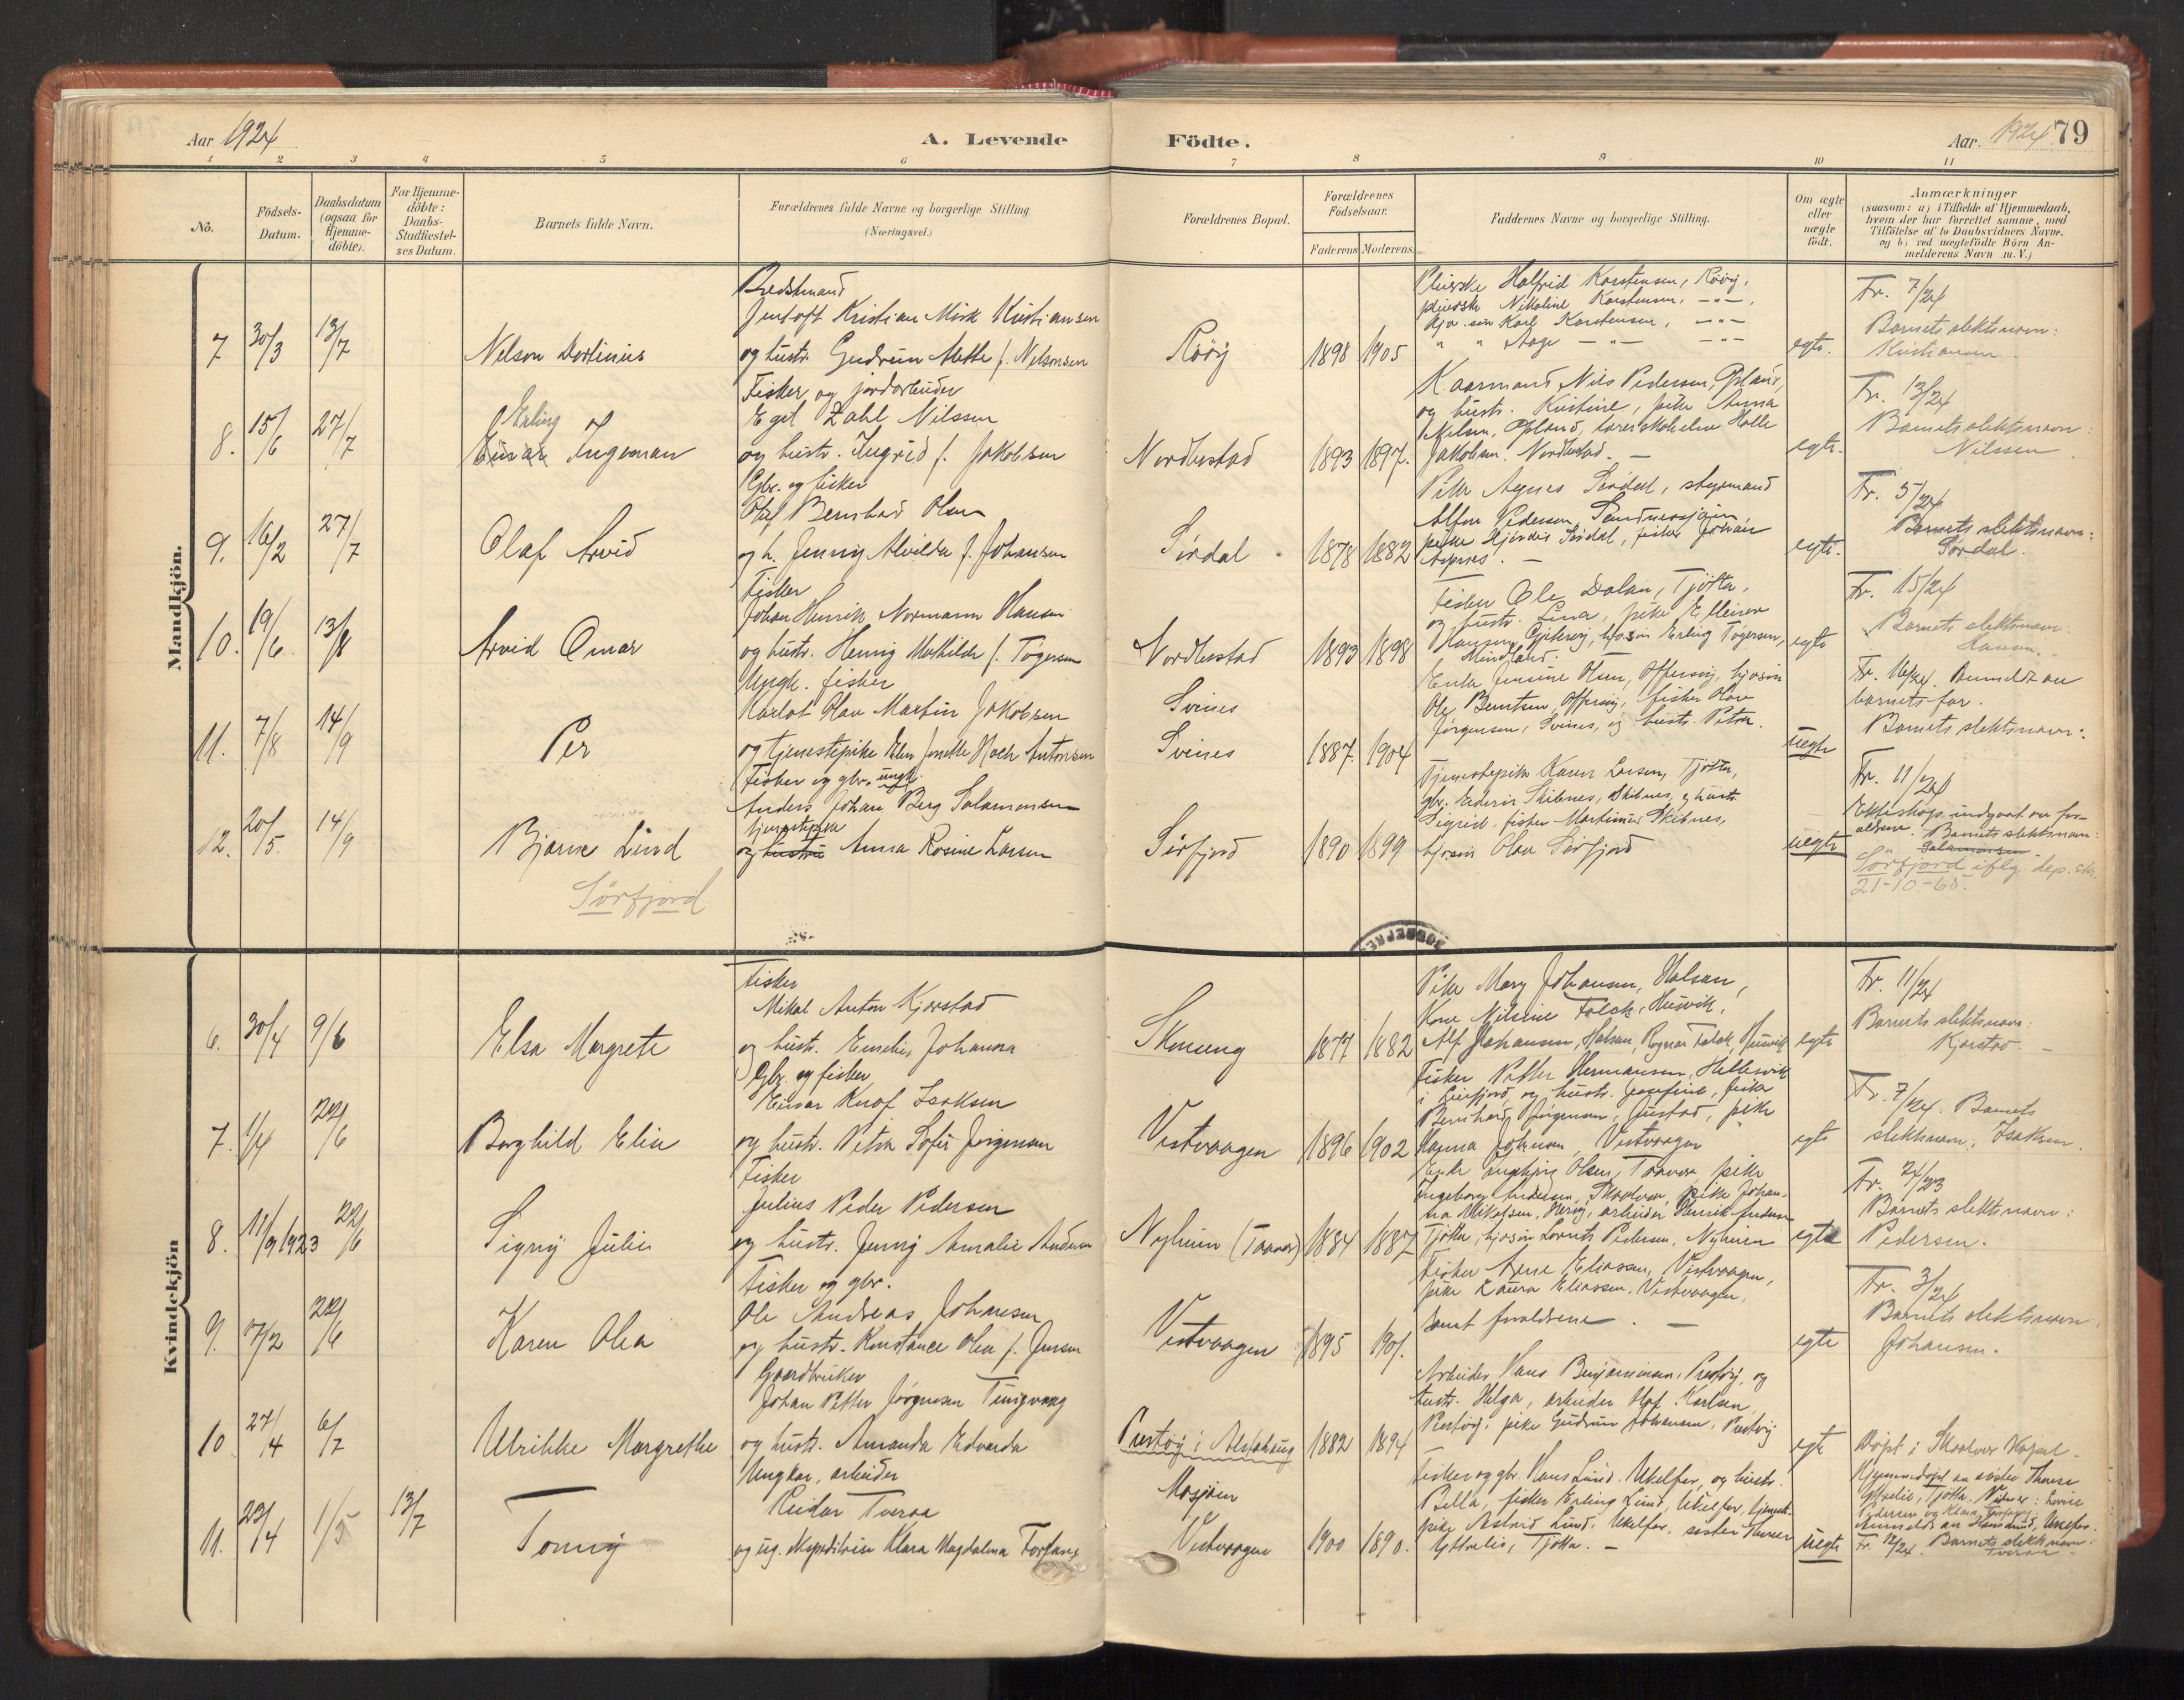 Aar 1924
A. Levende
Födte.
Aar. 1924 79
1 2 3 4 5 6 7 8 9 10 11
No.
Födsels-
Datum.
Daabsdatum
(ogsaa for
Hjemme-
döbte).
For Hjemme-
döbte:
Daabs-
Stadfæstel-
ses Datum.
Barnets fulde Navn.
Forældrenes fulde Navne og borgerlige Stilling
(Næringsvei.)
Forældrenes Bopæl.
Forældrenes
Födselsaar.
Faderens
Moderens.
Faddernes Navne og borgerlige Stilling.
Om ægte
eller
uægte
födt.
Anmærkninger
(saasom: a) i Tilfælde af Hjemmedaab,
hvem der har forrettet samme, med
Tilföielse af to Daabsvidners Navne.
og b) ved uægtefödte Börn An-
melderens Navn m.V.)
Mandkjön.
7 30/3 13/7
Nelson Dortinius
Jentoft Kristian Mörk Kristiansen
og hustr. Gudrun Alette f. Nilsonsen
Rööy
1898 1905
Pleierske Halfrid Karstensen, Rööy,
pleierske Nikoline Karstensen, -"-,
Gjo. sön Karl Karstensen, -"-
" " Aage -"- -"-
egte.
Fr. 7/24
Barnets slektsnavn:
Kristiansen.
8. 15/6 27/7
Erling
Einar Ingeman
Fisker og jordarbeider
Egil Zahl Nilssen
og hustr. Ingrid f. Jakobsen
Nordbustad
1893 1897.
Kaarmand Nils Pedersen, Opland,
og hustr. Kristine, pike Anna
Nilsen, Opland, lærerskoleelev Halle
Jakobsen, Nordbustad. -
egte.
Fr. 13/24
Barnets slektsnavn:
Nilssen
9. 16/2 27/7
Olaf Arvid
Gbr. og fisker
Olaf Bernhard Olsen
og h. Jenny Alvilde f. Johansen
Sördal
1878 1882
Pike Agnes Sördal, styrmand
Alfon Pedersen, Sandnessjöen,
pike Hjördis Sördal, fisker Johan
Aspnes. -
egte.
Fr. 5/24
Barnets slektsnavn:
Sördal.
10. 19/6 13/8
Arvid Omar
Fisker
Johan Henrik Normann Hansen
og hustr. Henny Mathilde f. Tögersen
Nordbustad
1893 1898
Fisker Ole Dalan, Tjötta,
og hustr. Lina, pike Ellinor
Hansen, Gjeteröy, hjo.sön Erling Tögersen,
Mindland.
egte
Fr. 15/24
Barnets slektsnavn:
Hansen.
11. 7/8 14/9
Per
Ungk. fisker
Karlot Olav Martin Jakobsen
og tjenestepike Elen Jonette Hoch Antonsen
Svines
Svines
1887. 1904
Enke Jensine Olsen, Offersöy, hjo.sön
Ole Berntsen, Offersöy, fisker Olav
Jörgensen, Svines, og hustr. Petra.
uegte
Fr. 16/24. Anmeldt av
barnets far.
Barnets slektsnavn:
12. 20/5 14/9
Bjarne Lind
Sörfjord
Fisker og gbr. ungk.
Anders Johan Berg Salamonsen
tjenestepike
og hustru Anna Rosine Larsen
Sörfjord
1890 1899
Tjenestepike Karen Larsen, Tjötta,
gbr. Edevin Skibnes, Skibnes, og hustr.
Sigrid, fisker Martinius Skibnes,
hjo.sön Olav Sörfjord
uegte
Fr. 11/24
Ekteskap indgaat av for-
ældrene. Barnets slektsnavn:
Salamonsen
Sörfjord iflg. dep. skr.
21-10-65.
Kvindekjön
6. 30/4 9/6
Elsa Margrete
Fisker
Mikal Anton Kjærstad
og hustr. Emelie, Johanna
1877 1882
Pike Mary Johansen, Halsan,
Kone Nilsine Falch, Husvik,
Alf Johansen, Halsan, Ragnar Falch, Husvik
egte
Fr. 11/24
Barnets slektsnavn:
Kjærstad. -
7. 1/4 22/6
Borghild Elise
Gbr. og fisker
Einar Knof Isaksen
og hustr. Petra Sofie Jörgensen
Vestvaagen
1896 1902
Fisker Petter Hermansen, Hellesvik
i Leirfjord, og hustr. Josefine, fisker
Bernhard Jörgensen, Justad, pike
Hanna Johnsen, Vestvaagen
egte
Fr. 7/24. Barnets
slektsnavn: Isaksen.
8. 11/9 1923 22/6
Signy Julie
Fisker
Julius Peder Pedersen
og hustr. Jenny Amalie Andersen
Nyheim (Traneva)
1884 1887
Ingeborg Andersen, Skaalvær, pike Johan-
na Mikalsen, Heröy, arbeider Henrik Andersen
Tjötta, hjo.sön Lorents Pedersen, Nyheim
egte
Fr. 24/23
Barnets slektsnavn:
Pedersen.
9. 17/2 22/6
Karen Olea
Fisker og gbr.
Ole Andreas Johansen
og hustr. Konstance Olea f. Jensen
Vestvaagen
1895 1901.
Fisker Arne Eliassen, Vestvaagen,
pike Laura Eliassen, Vestvaagen,
samt forældrene. -
egte
Fr. 3/24
Barnets slektsnavn:
Johansen.
10 27/4 6/7
Ulrikke Margrethe
Gaardbruker
Johan Petter Jörgensen Tingvaag
og hustr. Amanda Edvarda
Prestöy i Alstahaug
1882 1894
Arbeider Hans Benjaminsen, Prestöy, og
hustr. Helga, arbeider Olaf Karlsen,
Prestöy, pike Gudrun Johansen, Prestöy
egte
Döpt i Skaalvær Kapel.
11. 23/4 1/5 13/7
Tonny
Ungkar, arbeider
Reidar Tveraa
og ug. ekspeditrise Klara Magdalena Forfang
Mosjöen
Vestvaagen
1900 1890.
Fisker og gbr. Hans Lund, Ukelfar, og hustr.
Bella, fisker Erling Lund, Ukelfar, tjeneste-
pike Astrid Lund, Ukelfar, söster Therese
Yttrelie, Tjötta. -
uegte
Hjemmedöpt av söster Therese
Yttrelie, Tjötta. Vidner: Lovise
Pedersen og Klara Forfang
Anmeldt av Hans Lund, Ukelfar.
Fr. 12/24. Barnets slektsnavn:
Tveraa